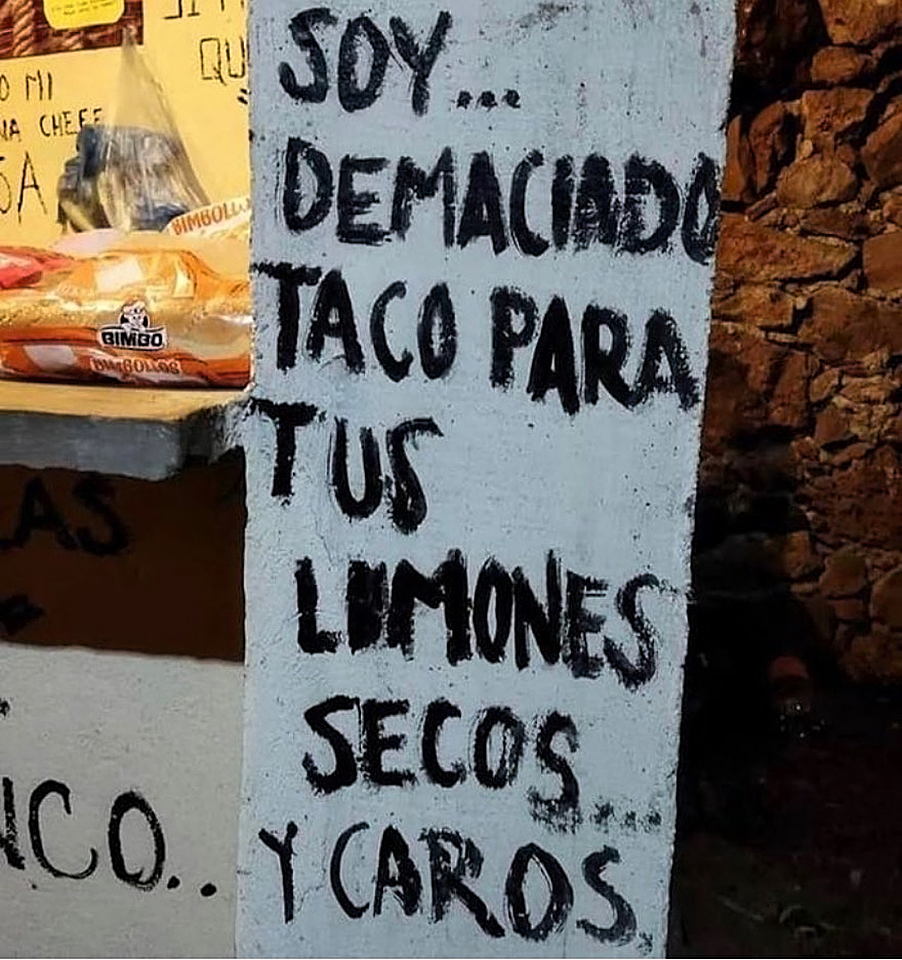 QU
O MI
NA CHEFF
SA
BIMBOLLOS
BIMBO
BIMBOLLOS
LAS
ICO..
SOY...
DEMACIADO
TACO PARA
TUS
LIMONES
SECOS....
Y CAROS.